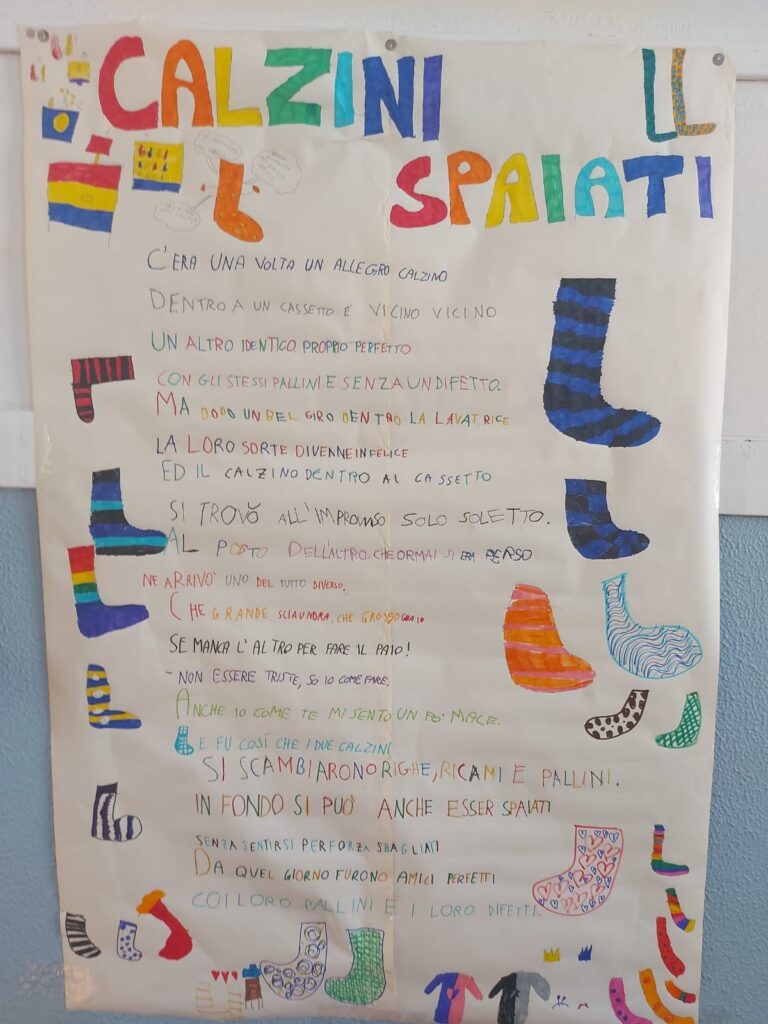 CALZINI
SPAIATI
C'ERA UNA VOLTA UN ALLEGRO CALZINO
DENTRO A UN CASSETTO E VICINO VICINO
UN ALTRO IDENTICO PROPRIO PERFETTO
CON GLI STESSI PALLINI E SENZA UN DIFETTO.
MA DOPO UN BEL GIRO DENTRO LA LAVATRICE
LA LORO SORTE DIVENNE INFELICE
ED IL CALZINO DENTRO AL CASSETTO
SI TROVÒ ALL'IMPROVVISO SOLO SOLETTO.
AL POSTO DELL'ALTRO, CHE ORMAI SI ERA PERSO
NE ARRIVÒ UNO DEL TUTTO DIVERSO.
CHE GRANDE CHE
SE MANCA L'ALTRO PER FARE IL PAIO!
- NON ESSERE TRISTE, SO IO COME FARE.
ANCHE IO COME TE MI SENTO UN PO' MALE.
E FU COSÍ CHE I DUE CALZINI
SI SCAMBIARONO RIGHE, RICAMI E PALLINI.
IN FONDO SI PUÒ ANCHE ESSER SPAIATI
SENZA SENTIRSI PER FORZA SBAGLIATI
DA QUEL GIORNO FURONO AMICI PERFETTI
COI LORO PALLINI E I LORO DIFETTI.